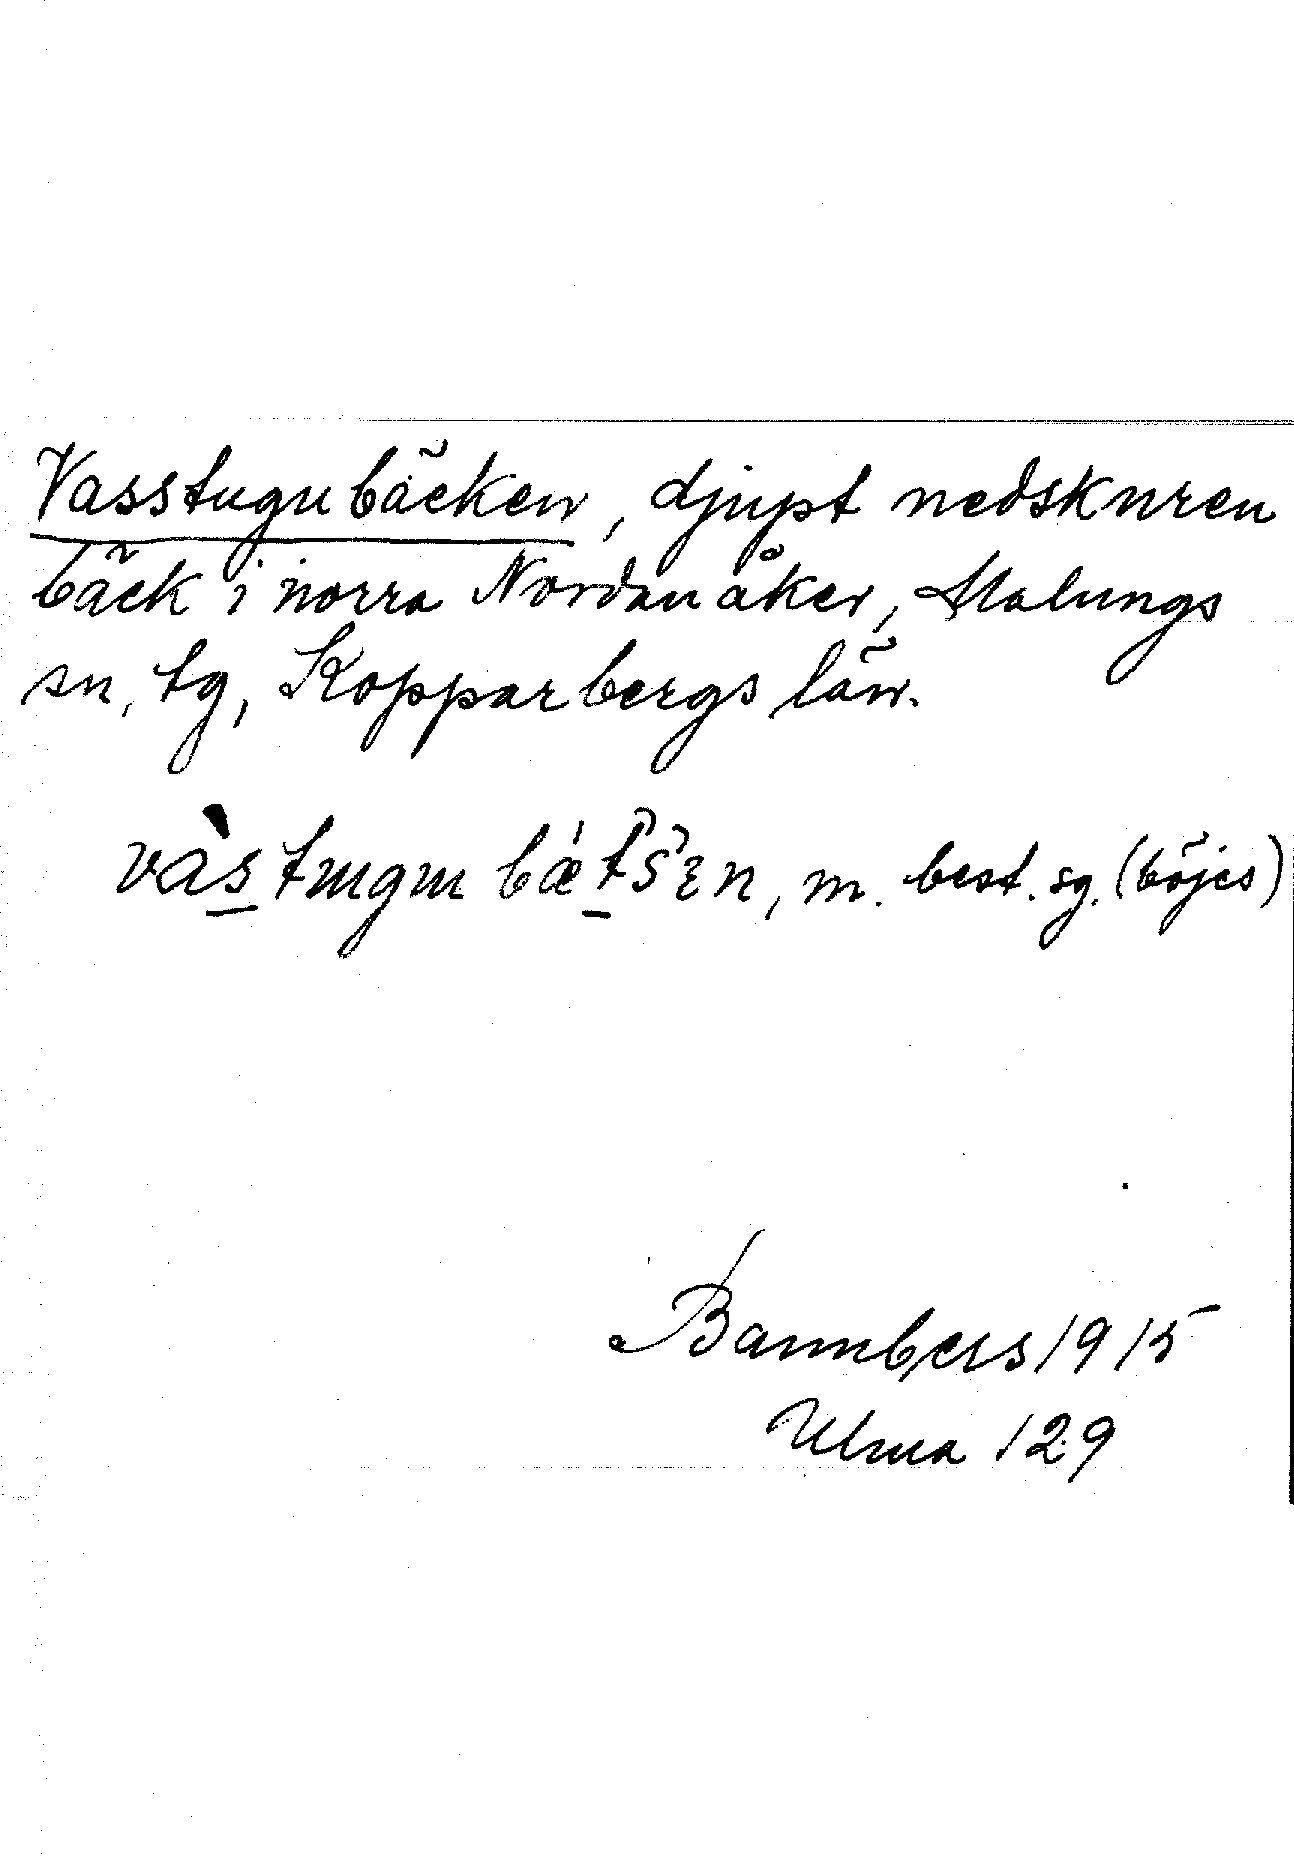 Vasstugubäcken, djupt nedskuren
bäck i norra Nordanåker, Malungs
sn, tg, Kopparbergs län.
vàstɯgɯbǽtšɛn, m. best. sg. (böjes)
Bannbers 1915
Ulma 129